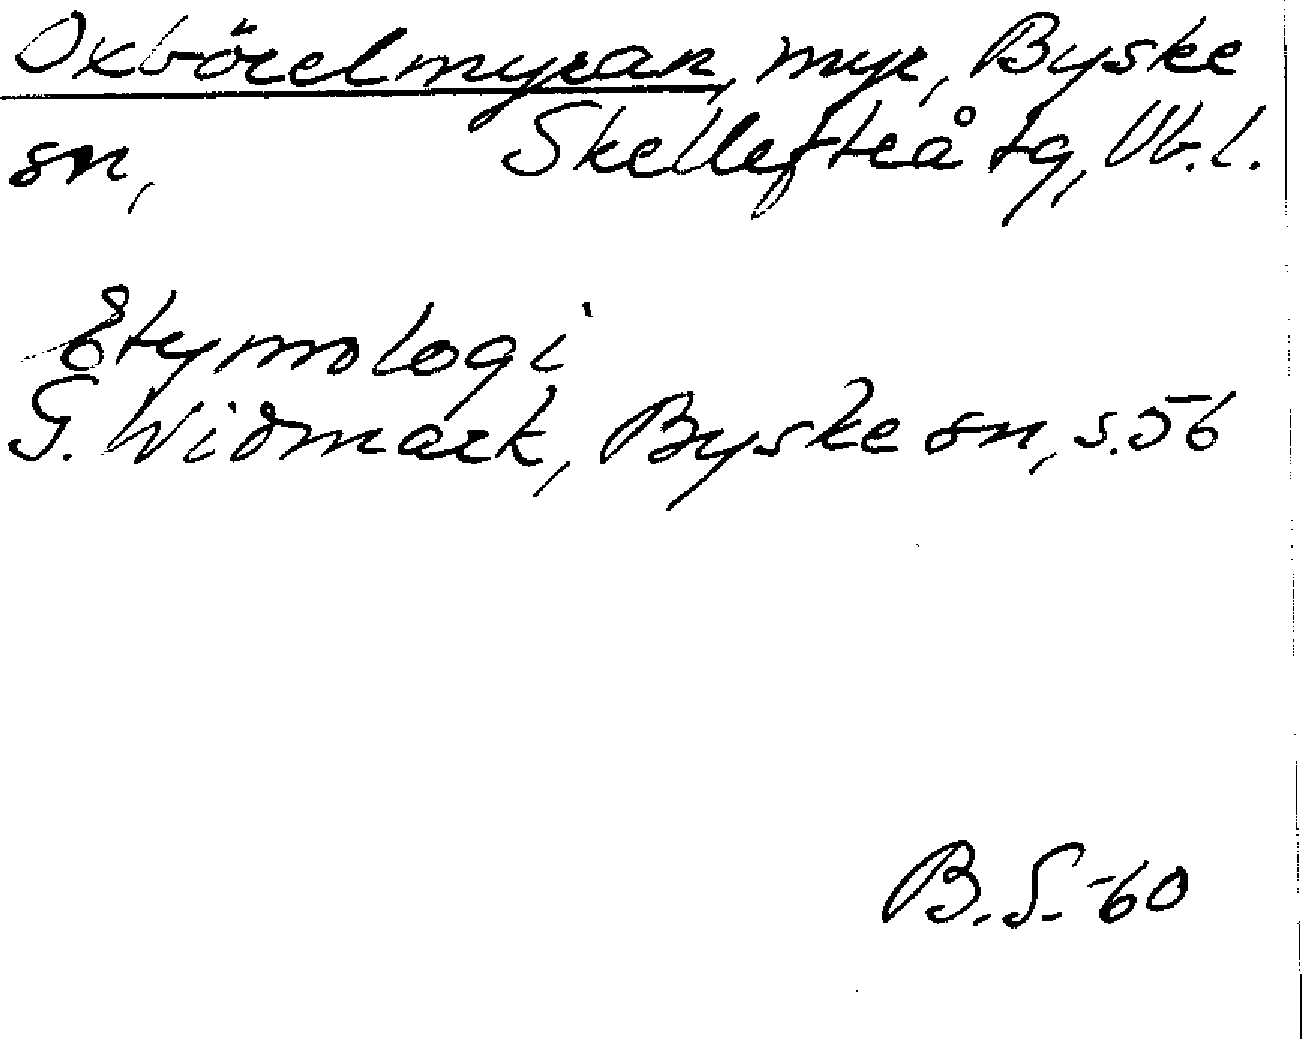 Oxbörelmyran, myr, Byske
sn, Skellefteå tg, Vb.l.
Etymologi
G. Widmark, Byske sn, s.56
B.S.-60